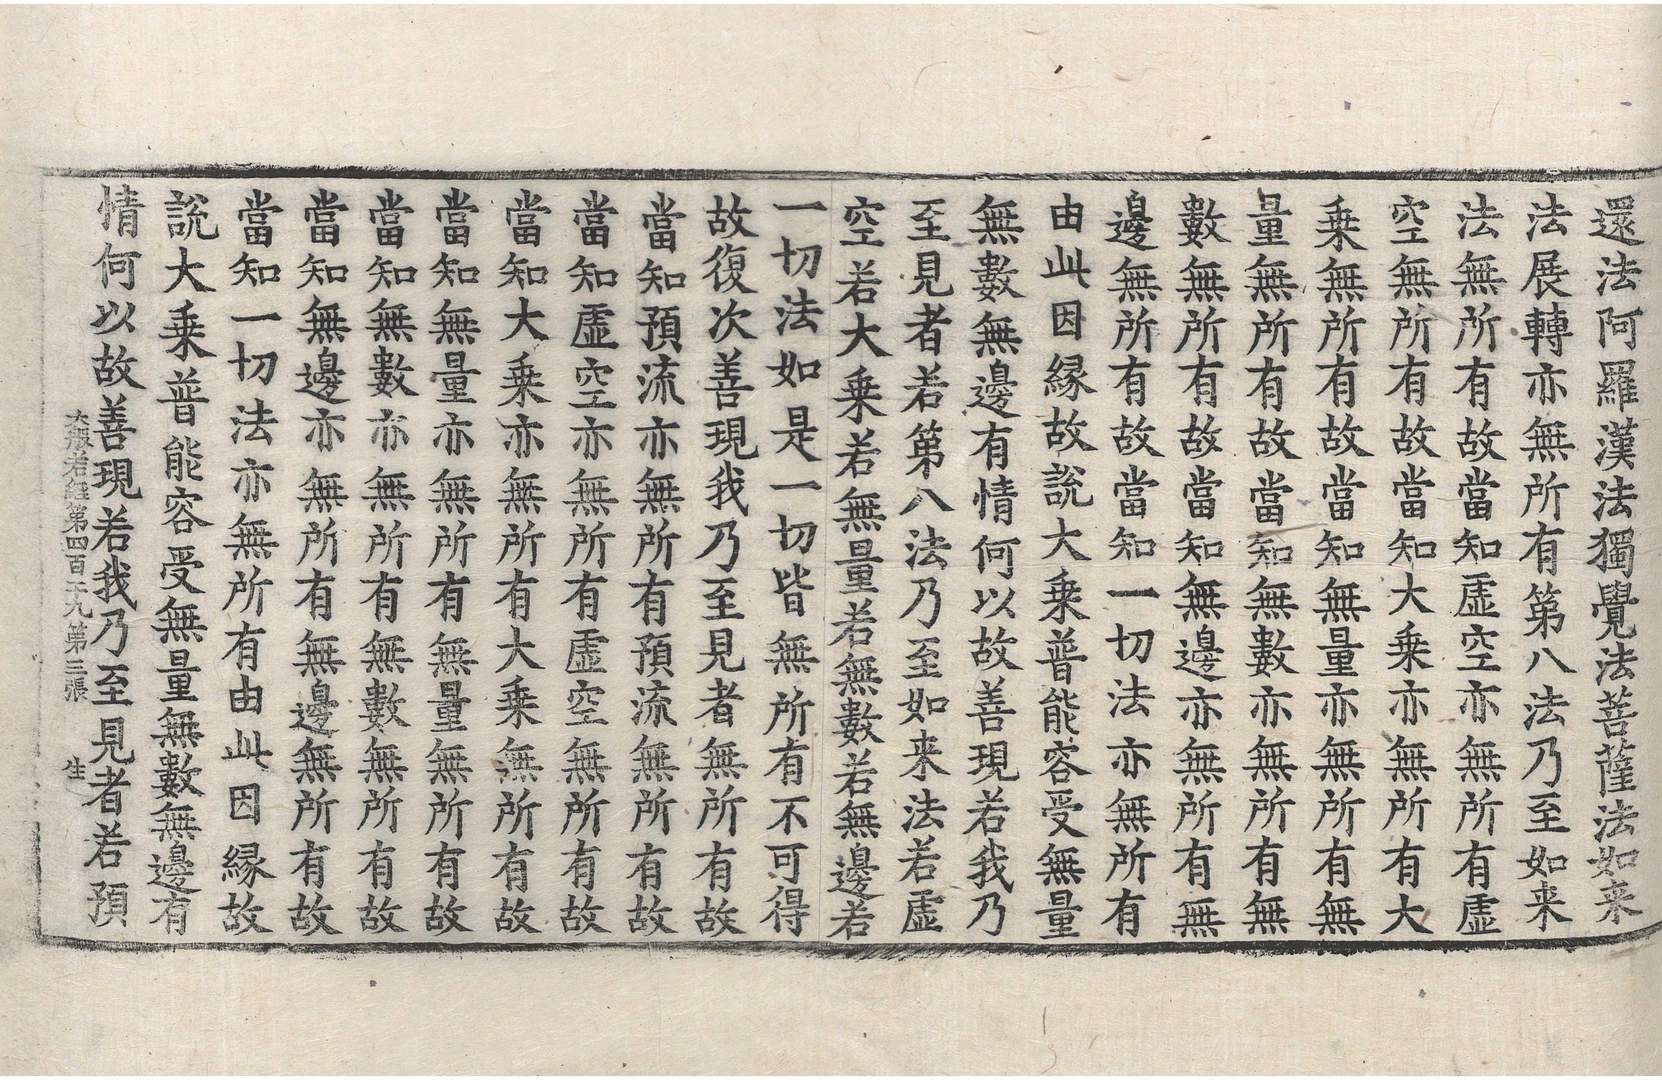 還法阿羅漢法獨覺法菩薩法如来
法展轉亦無所有第八法乃至如来
法無所有故當知虛空亦無所有虛
空無所有故當知大乗亦無所有大
乗無所有故當知無量亦無所有無
量無所有故當知無數亦無所有無
數無所有故當知無邊亦無所有無
邊無所有故當知一切法亦無所有
由此因縁故說大乗普能容受無量
無數無邊有情何以故善現若我乃
至見者若第八法乃至如来法若虛
空若大乗若無量若無數若無邊若
一切法如是一切皆無所有不可得
故復次善現我乃至見者無所有故
當知預流亦無所有預流無所有故
當知虛空亦無所有虛空無所有故
當知大乗亦無所有大乗無所有故
當知無量亦無所有無量無所有故
當知無數亦無所有無數無所有故
當知無邊亦無所有無邊無所有故
當知一切法亦無所有由此因縁故
說大乗普能容受無量無數無邊有
情何以故善現若我乃至見者若預
大般若経第四百十九第三張 生